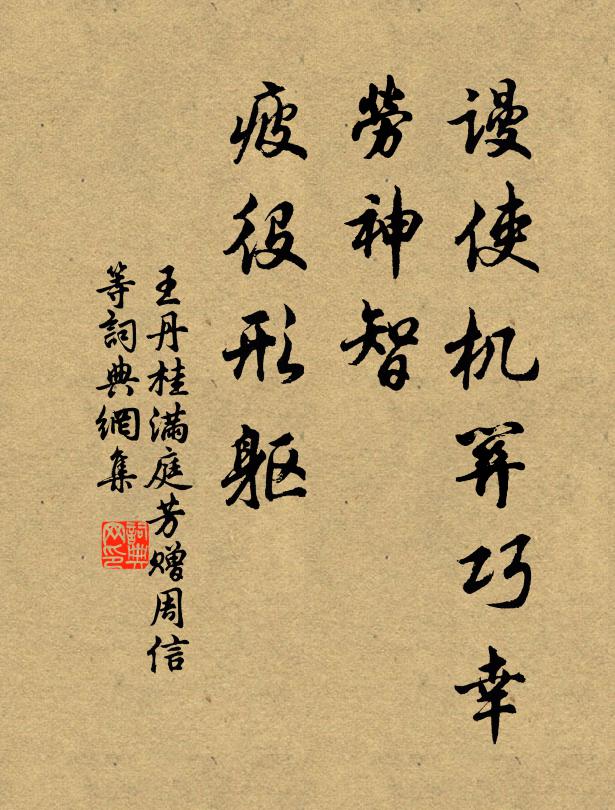 谩使机筭巧幸
勞神智
疲役形躯
王丹桂满庭芳赠周信
等詞典網集
詞典
网印